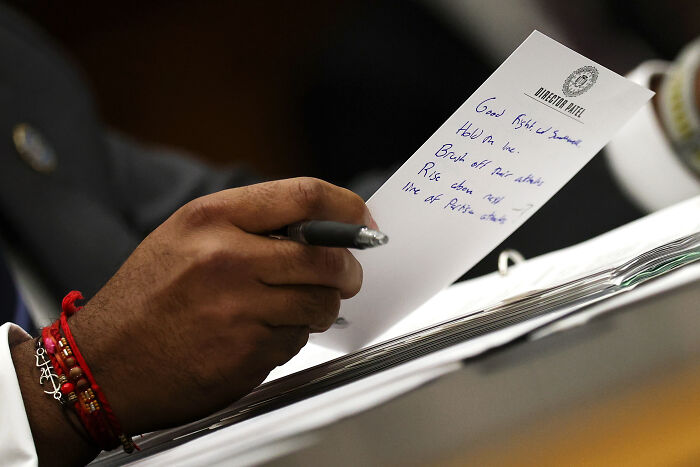 DIRECTOR PATEL
Good fight w/ Swalwell
Hold the line.
Brush off their attacks
Rise above next
line of Partisan attacks